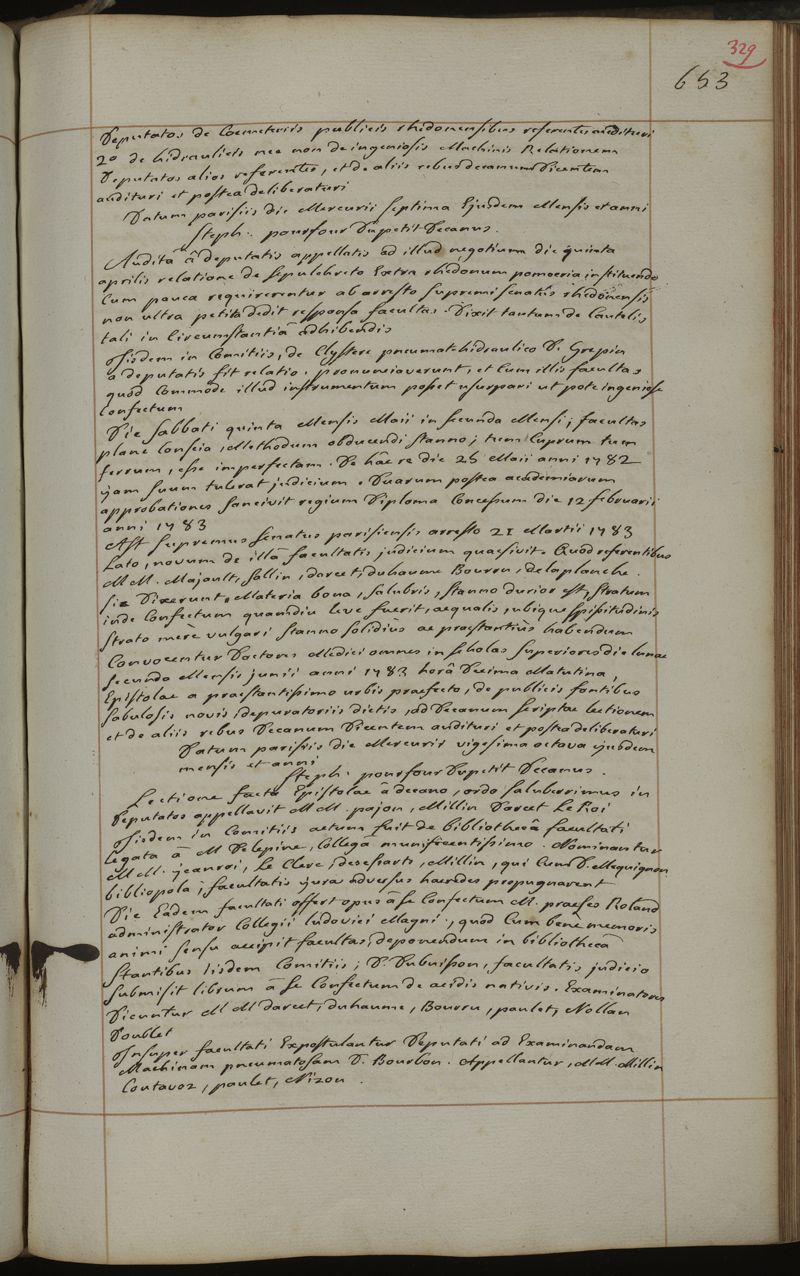 329
653
Deputatos de Coemeteriis publicis rhedonensibus referentes audituri
2º de hidraulicis nec non de ingeniosis Machinis Relationem
Deputatos alios referentes, et de aliis rebus decanum Dicentem
audituri et postea deliberaturi
Datum parisiis die Mercurii septima Ejusdem Mensis et anni
Steph. pourfour Dupetit Decanus.
Audita à deputatis appellatis ad illud negotium die quinta
aprilis relatione de sepulchreto Extra rhedonum pomoeria instituendo
Cum pauca requirerentur ab arresto supremi senatûs rhedonensis
non ultra petita dedit responsa facultas. Dixit tantum de Cautelis
tali in Circumstantiâ adhibendis
Iisdem in Comitiis, de Clystere pneumatchidraulico D. Grepin
a deputatis fit relatio. pronunciaverunt, et Cum illis facultas
quod Commode illud instrumentum posset usurpari ut pote ingeniose
Confectum
Die sabbati quinta Mensis Maii in secunda Mensi; facultas
plane Conscia, Methodum obducendi stanno; tum Cuprum tum
ferrum, esse imperfectam. De hâc re die 25 Maii anni 1782
jam suum tulerat judicium. Duarum postea academiarum
approbationes sancivit regium Diploma Concessum die 12 februarii
anni 1783
Ast supremus senatus parisiensis arresto 21 Martii 1783
Lato, novum de illâ facultatis judicium quaesivit. Quod referentibus
MM. Majault, sallin, darcet, duhaume Bourru, delaplanche.
sic Dixerunt. Materia bona, salubris, stanno durior est, stratum
inde Confectum quamdiu leve fuerit, aequalis, ubique spissitudinis
strato merè vulgari stanno solidiùs ac praestantiùs habendum
Convocentur Doctores Medici omnes in scholas superiores die lunae
secunda Mensis junii anni 1783 horâ Decima Matutina,
Epistolae a praestantissimo urbis praefecto, de publicis fontibus
sabulosis novis depuratoriis dictis, ad Decanum scriptae lectionem
et de aliis rebus Decanum Dicentem audituri et postea deliberaturi
Datum parisiis die Mercurii vigesima octava ejusdem
mensis et anni
Steph. pourfour Dupetit Decanus.
Lectione facta Epistolae â decano, ordo saluberrimus in
Deputatos appellavit MM. pajon, Millin Darcet Le Roi
Iisdem in Comitiis actum fuit de bibliothecâ facultati
legata â M Delepine, Collega munificentissimo. Nominantur
MM. jeanroi, Le Clerc, desessarts, Millin, qui Cum D. Mequignon
bibliopola, facultatis jura adversus haeredes propugnarent
Die Eadem facultati offert opus â se Confectum M. praeses Roland
administrator Collegii ludovici Magni., quod Cum benè memoris
animi sensu accipit facultas, deponendum in bibliothecâ
stantibus iisdem Comitiis; D. Dubuisson, facultatis judicio
submisit librum â se Confectum de acidis nativis. Examinatores
Dicuntur MM Darcet, duhaume, Bourru, paulet, Nollan
Doublet
Insuper facultati Expostulantur Deputati ad Examinandam
Machinam pneumatosam D. Bourbon. Appellantur, MM. Millin
Coutavoz, paulet, Nizon.